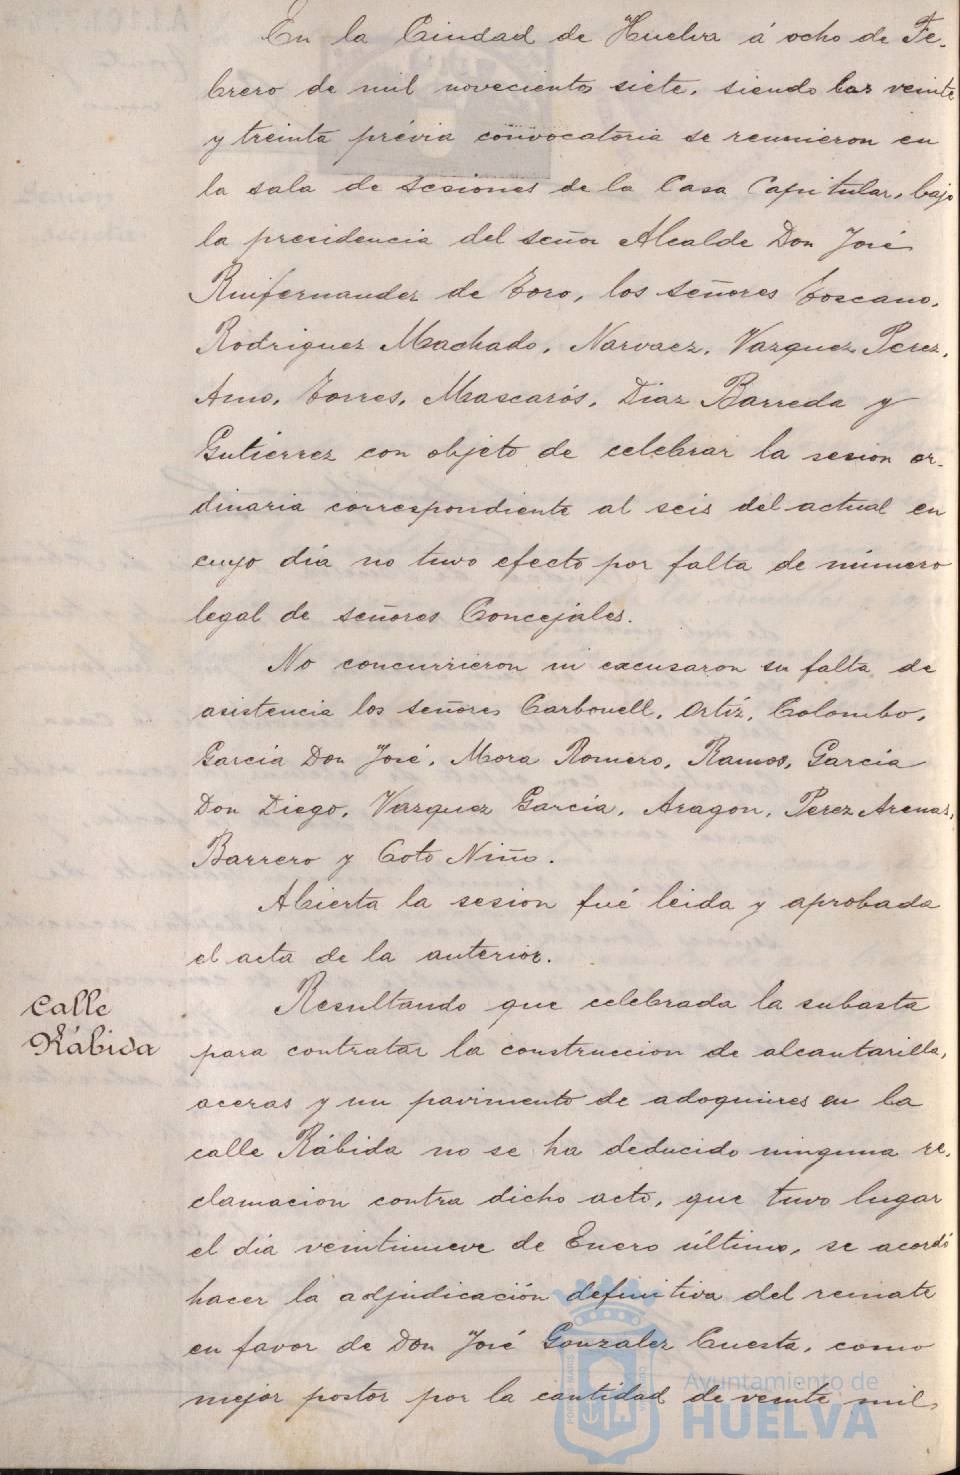 En la Ciudad de Huelva á ocho de Fe-
brero de mil novecientos siete, siendo las veinte
y treinta prévia convocatoria se reunieron en
la sala de sesiones de la Casa Capitular, bajo
la presidencia del señor Alcalde Don José
Ruifernandez de Toro, los señores Toscano,
Rodriguez Machado, Narvaez, Vazquez Perez,
Amo, Torres, Mascarós, Diaz Barreda y
Gutierrez con objeto de celebrar la sesion or-
dinaria correspondiente al seis del actual en
cuyo día no tuvo efecto por falta de número
legal de señores Concejales.
No concurrieron ni excusaron su falta de
asistencia los señores Carbonell, Ortíz, Colombo,
García Don José, Mora Romero, Ramos, García
Don Diego, Vazquez García, Aragon, Perez Arenas,
Barrero y Coto Niño.
Abierta la sesion fué leida y aprobada
el acta de la anterior.
Calle
Rábida
Resultando que celebrada la subasta
para contratar la construccion de alcantarilla,
aceras y un pavimento de adoquines en la
calle Rábida no se ha deducido ninguna re-
clamacion contra dicho acto, que tuvo lugar
el día veintinueve de Enero último, se acordó
hacer la adjudicación definitiva del remate
en favor de Don José Gonzalez Cuesta, como
mejor postor por la cantidad de veinte mil
Ayuntamiento de
HUELVA